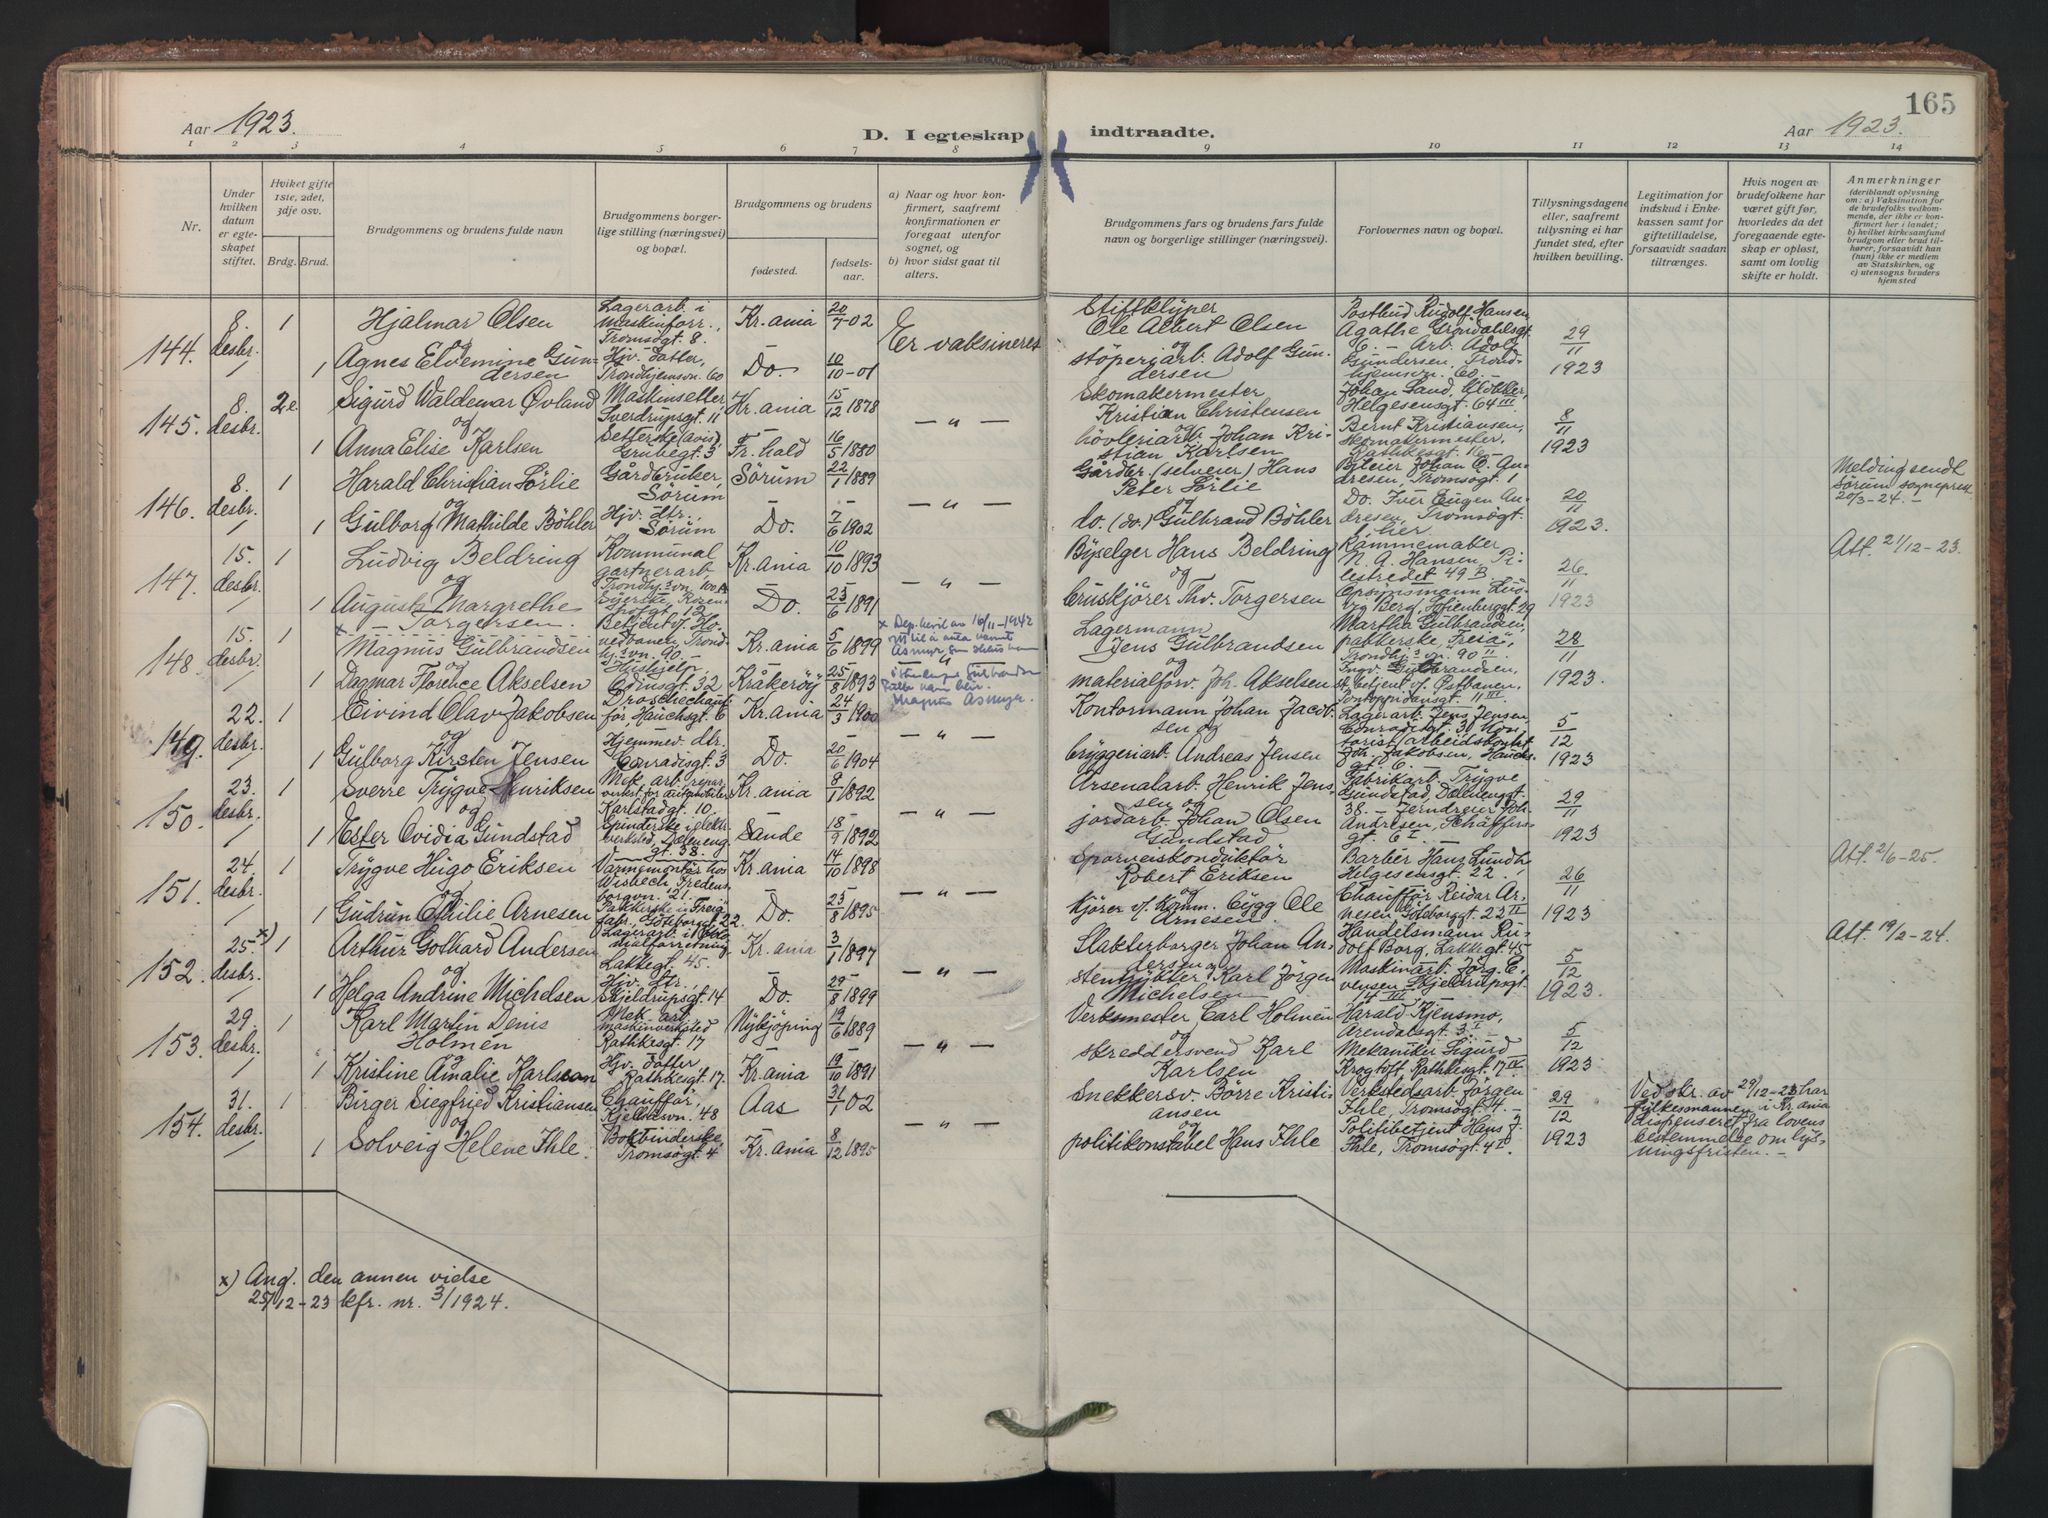 165
Aar 1923.
D. I egteskap indtraadte.
Aar 1923.
1 2 3 4 5 6 7 8 9 10 11 12 13 14
Nr.
Under hvilken datum er egteskapet stiftet.
Hviket gifte 1ste, 2det, 3dje osv.
Brdg. Brud.
Brudgommens og brudens fulde navn
Brudgommens borgerlige stilling (næringsvei) og bopæl.
Brudgommens og brudens
fødested.
fødselsaar.
a) Naar og hvor konfirmert, saafremt konfirmationen er foregaat utenfor sognet, og
b) hvor sidst gaat til alters.
Brudgommens fars og brudens fars fulde navn og borgerlige stillinger (næringsvei).
Forlovernes navn og bopæl.
Tillysningsdagene eller, saafremt tillysning ei har fundet sted, efter hvilken bevilling.
Legitimation for indskud i Enkekassen samt for giftetilladelse, forsaavidt saadan tiltrænges.
Hvis nogen av brudefolkene har været gift før, hvorledes da det foregaaende egteskap er opløst, samt om lovlig skifte er holdt.
Anmerkninger
(deriblandt oplysning om: a) Vaksination for de brudefolks vedkommende, der ikke er konfirmert her i landet; b) hvilket kirkesamfund brudgom eller brud tilhører, forsaavidt han (hun) ikke er medlem av Statskirken, og c) utensogns bruders hjemsted
144. 8. desbr. 1 Hjalmar Olsen
Lagerarb. i maskinforr., Tromsøgt 8.
Kr.ania 20/7-02
Er vaksineret
og
1 Agnes Elvemine Gundersen
Hjv. datter, Trondhjemsvn. 60
Do. 16/10-01
Ole Albert Olsen
og
støperiarb. Adolf Gundersen
Postbud Rudolf Hansen
Agathe Grøndahlsgt 6. - Arb. Adolf
Gundersen, Trondhjemsvn. 60. -
29/11 1923
145. 8. desbr. 2e. Sigurd Waldemar Øvland
Maskinsetter Sverdrupsgt. 11
Kr.ania 15/12 1878
- " -
og
1 Anna Elise Karlsen
Setterske (avis) Grubegt. 3
Fr.hald 16/5 1880
Skomakermester
Kristian Christensen
og
høvleriarb. Johan Kristian Karlsen
Helgesensgt. 64 III
Bernt Kristiansen, skomakermester,
Rathkesgt. 16 -
8/11 1923
146. 8. desbr. 1 Harald Christian Sørlie
Gårdbruker, Sørum
Sørum 22/1 1889
- " -
og
1 Gulborg Mathilde Bøhler
Hjv. dtr., Sørum
Do. 7/6 1902
Gårdbr. (selveier) Hans
Peter Sørlie
og
do. (do.) Gulbrand Bøhler
Johan C. Andresen, Tromsøgt. 1
Do. Iver Eugen Andresen, Tromsøgt.
1, her
20/11 1923.
Melding sendt
Sørum sogneprest
20/3-24. -
147. 15. desbr. 1 Ludvig Beldring
Kommunal gartnerarb
Kr.ania 10/10 1893
- " -
og
1 Augusta Margrethe Torgersen.
Do. 23/6 1891
Hans Beldring
og
Bruskjører Thv. Torgersen
Rammemaker
N. A. Hansen, Pilestredet 49 B
Opsynsmann Ludvig Berg, Sofienberggt. 29
26/11 1923
Att. 21/12-23.
148. 15. desbr. 1 x Magnus Gulbrandsen
Betjent v. Hovedbanen, Trondhj.svn. 90. -
Kr.ania 5/6 1899
x Dep. bevil av 16/11-1942
Magnus Asmyr.
og
Dagmar Florence Akselsen
Hushjelp,
Kråkerøy 25/8 1893
Lagermann
Jens Gulbrandsen
og
materialforv. Joh. Akselsen
Martha Gulbrandsen,
pakkerske "Freia",
Trondhj.s vn. 90 II
Ingv. Gulbrandsen,
st.betjent v. Østbanen,
Pontoppidansgt. 11 III
28/11 1923.
149. 22. desbr. 1 Eivind Olav Jakobsen
Droschechauffør, Hauchsgt. 6
Kr.ania 24/3 1900
- " -
og
1 Gulborg Kirsten Jensen
Hjemmev. dtr. Conradisgt. 3
Do. 20/6 1904
Kontormann Johan Jacobsen og
bryggeriarb. Andreas Jensen
Lagerarb. Jens Jensen,
Conradisgt. 3
Joh. Jakobsen, Hauchsgt. 6. -
5/12 1923
150. 23. desbr. 1 Sverre Trygve Henriksen
Karlstadgt. 10.
Kr.ania 8/1 1892
- " -
og
1 Ester Ovidia Gundstad
Sande 18/9 1892
Arsenalarb. Henrik Jenssen og
jordarb. Johan Olsen
Gundstad
Fabrikarb. Trygve
Gundstad, Dælenenggt
38. - Jerndreier Joh.
Andresen, Schäffersgt. 6 I -
29/11 1923
151. 24. desbr. 1 Trygve Hugo Eriksen
Varmemontør hos
Wisbech, Fredensborgvn. 21.
Kr.ania 14/10 1898
- " -
og
1 Gudrun Emilie Arnesen
Pakkerske i Freia fabr. Göteborggt 22.
Do. 23/8 1895
Sporveiskonduktør
Robert Eriksen
og
Kjører v/ Komm. Bygg Ole
Arnesen
Barber Hans Lundh
Helgesensgt. 22.
Chauffør Reidar Arnesen Göteborggt. 22 II
26/11 1923
Att. 2/6-25.
152. 25. x) desbr. 1 Arthur Gothard Andersen
Lakkegt. 45.
Kr.ania 3/1 1897
- " -
og
1 Helga Andrine Michelsen
Hjv. dtr., Skjeldrupsgt. 14
Do. 29/8 1899
Johan Andersen og
stenhugger Karl Jørgen
Michelsen
Handelsmann Rudolf Borg, Lakkegt. 45
Maskinarb. Jørg. Evensen Skjeldrupsgt.
14 III
5/12 1923.
Att. 19/2-24.
153. 29. desbr. 1 Karl Martin Denis
Holmen
Mek. arb. maskinverksted
Rathkesgt. 17
Nykjøping 19/6 1889
- " -
og
1 Kristine Amalie Karlsson
Hjv. datter Rathkesgt. 17.
Kr.ania 19/10 1891
Verksmester Carl Holmen
og
skreddersvend Karl
Karlsen
Harald Kjensmo,
Arendalsgt. 3 I -
Mekaniker Sigurd
Krogtoft Rathkesgt. 17 IV
5/12 1923
154. 31. desbr. 1 Birger Siegfried Kristiansen
Chauffør, Kjelsåsvn. 48
Aas 31/1 02
- " -
og
1 Solveig Helene Ihle.
Bokbinderske, Tromsøgt. 4
Kr.ania 8/12 1895
Snekkersv. Børre Kristiansen
og
politikonstabel Hans Ihle
Verkstedsarb. Jørgen
Ihle, Tromsøgt. 4. -
Politibetjent Hans J.
Ihle, Tromsøgt. 4 I
29/12 1923
Ved skr. av 29/12-23 har
fylkesmannen i Kr.ania
dispenseret fra lovens
bestemmelse om lysningsfristen. -
x) Ang. den annen vielse
25/12-23 kfr. nr. 3/1924.